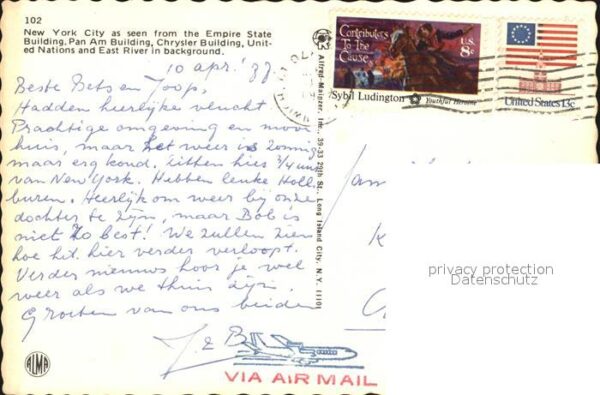 102
New York City as seen from the Empire State
Building, Pan Am Building, Chrysler Building, Unit-
ed Nations and East River in background.
10 apr. '77
Beste Bets en Joop,
Hadden heerlijke vlucht
Prachtige omgeving en mooi
huis, maar het weer is zonnig
maar erg koud. Zitten hier 3/4 uur
van New York. Hebben leuke Holl
buren. Heerlijk om weer bij onze
dochter te zijn, maar Bob is
niet zo best! We zullen zien
hoe hit hier verder verloopt.
Verder nieuws hoor je wel
weer als we thuis zijn.
Groeten van ons beiden
J. & B
ALMA
VIA AIR MAIL
Alfred Mainzer, Inc., 39-33 29th St., Long Island City, N. Y. 11101
Contributors
To The
Cause...
U.S.
8c
Sybil Ludington
Youthful Heroine
United States 13c
privacy protection
Datenschutz